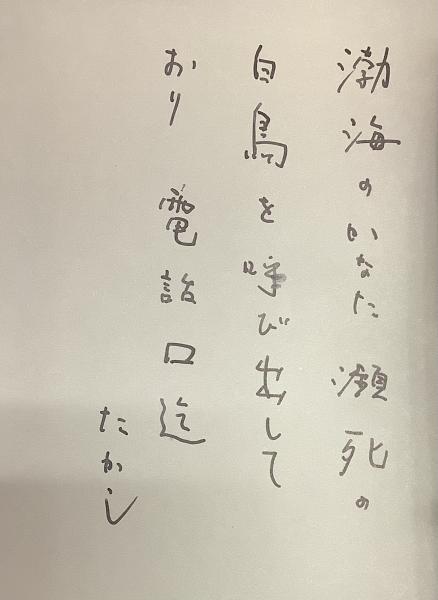 渤海のかなた 瀕死の
白鳥を呼び出して
おり 電話口迄
たかし